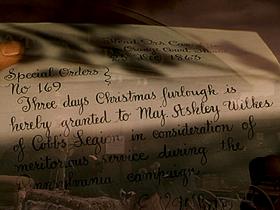 Hd Ors Cav
Orange Court House
Dec 1863
Special Orders }
No 169
Three days Christmas furlough is
hereby granted to Maj. Ashley Wilkes
of Cobb's Legion in consideration of
meritorious service during the
Pennsylvania campaign.